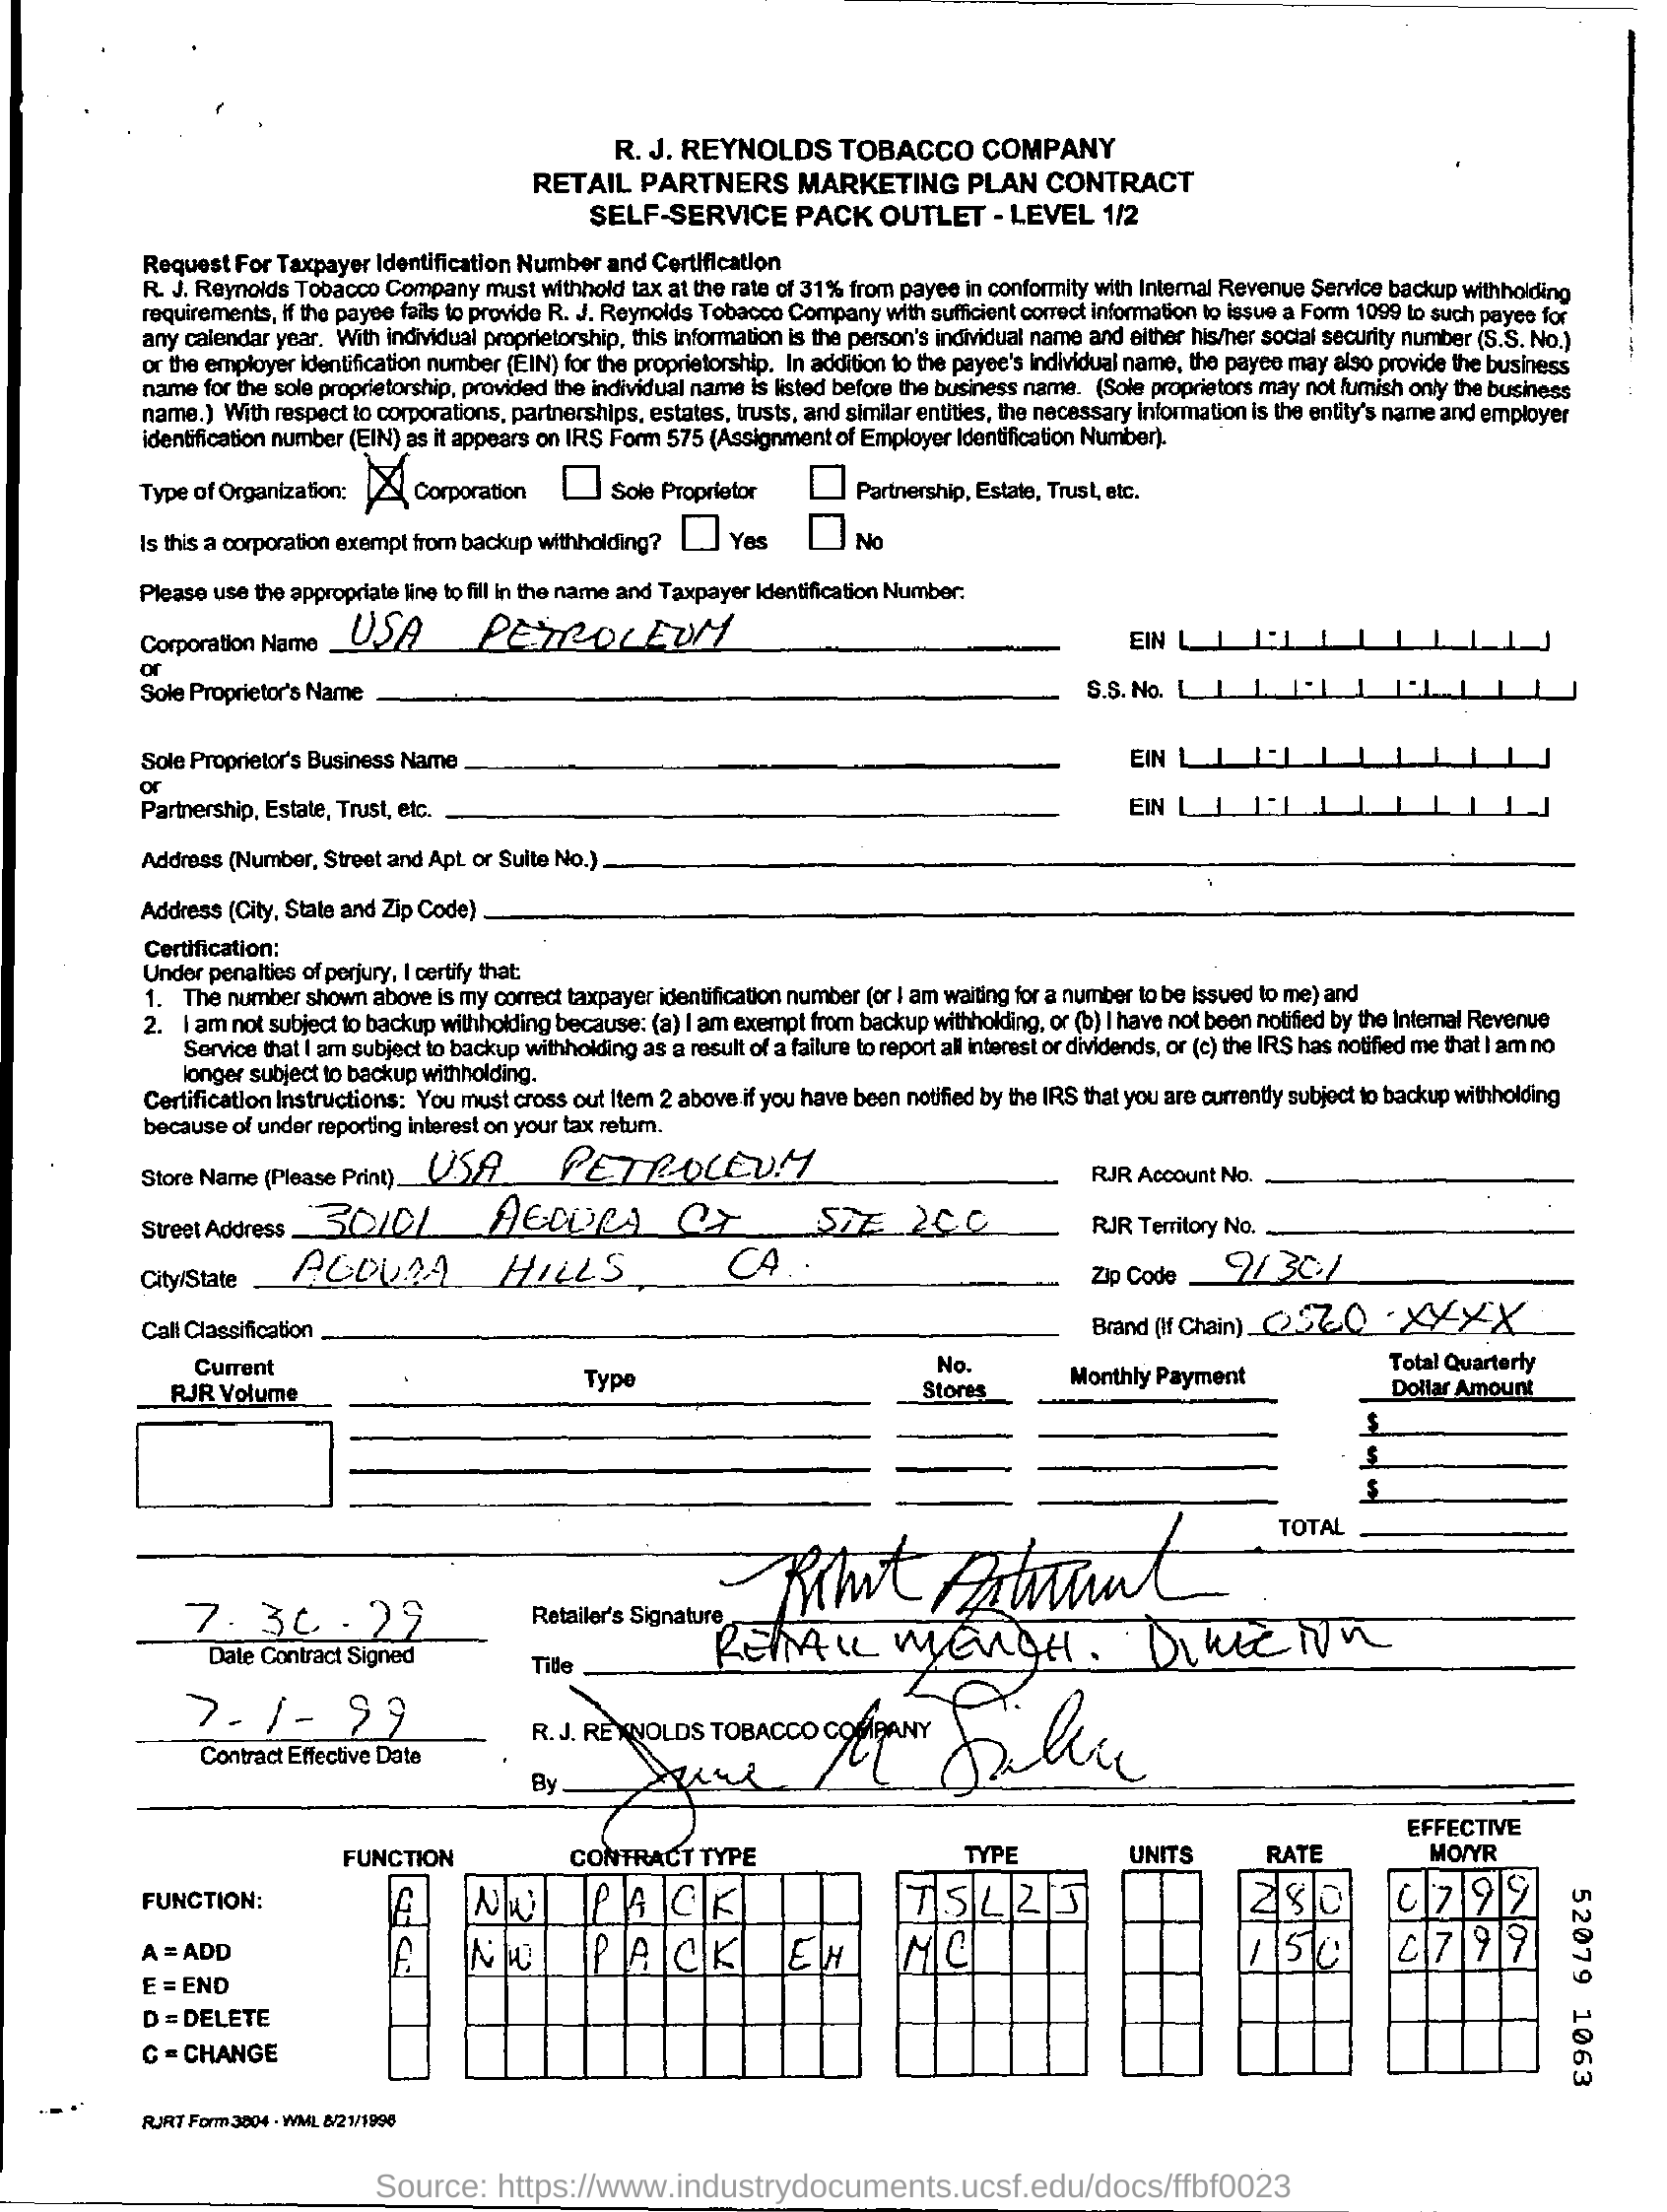 R. J. REYNOLDS TOBACCO COMPANY
RETAIL PARTNERS MARKETING PLAN CONTRACT
SELF-SERVICE PACK OUTLET - LEVEL 1/2
Request For Taxpayer Identification Number and Certification
R. J. Reynolds Tobacco Company must withhold tax at the rate of 31% from payee in conformity with Internal Revenue Service backup withholding
requirements, if the payee fails to provide R. J. Reynolds Tobacco Company with sufficient correct information to issue a Form 1099 to such payee for
any calendar year. With individual proprietorship, this information is the person's individual name and either his/her social security number (S.S. No.)
or the employer identification number (EIN) for the proprietorship. In addition to the payee's individual name, the payee may also provide the business
name for the sole proprietorship, provided the individual name is listed before the business name. (Sole proprietors may not furnish only the business
name.) With respect to corporations, partnerships, estates, trusts, and similar entities, the necessary information is the entity's name and employer
identification number (EIN) as it appears on IRS Form 575 (Assignment of Employer Identification Number).
Type of Organization: X Corporation Sole Proprietor Partnership, Estate, Trust, etc.
Is this a corporation exempt from backup withholding? Yes No
Please use the appropriate line to fill in the name and Taxpayer Identification Number:
Corporation Name USA PETROLEUM EIN
or
Sole Proprietor's Name S.S. No.
Sole Proprietor's Business Name EIN
or
Partnership, Estate, Trust, etc. EIN
Address (Number, Street and Apt. or Suite No.)
Address (City, State and Zip Code)
Certification:
Under penalties of perjury, I certify that:
1. The number shown above is my correct taxpayer identification number (or I am waiting for a number to be issued to me) and
2. I am not subject to backup withholding because: (a) I am exempt from backup withholding, or (b) I have not been notified by the Internal Revenue
Service that I am subject to backup withholding as a result of a failure to report all interest or dividends, or (c) the IRS has notified me that I am no
longer subject to backup withholding.
Certification Instructions: You must cross out Item 2 above if you have been notified by the IRS that you are currently subject to backup withholding
because of under reporting interest on your tax return.
Store Name (Please Print) USA PETROLEUM RJR Account No.
Street Address 30101 AGOURA CT STE 200 RJR Territory No.
City/State AGOURA HILLS, CA. Zip Code 91301
Call Classification Brand (If Chain) 0560-XXXX
Current RJR Volume Type No. Stores Monthly Payment Total Quarterly Dollar Amount
$
$
$
TOTAL
7-30-99 Retailer's Signature Robert
Date Contract Signed
Title RETAIL MERCH. DIRECTOR
7-1-99 R. J. REYNOLDS TOBACCO COMPANY
Contract Effective Date
By M
FUNCTION CONTRACT TYPE TYPE UNITS RATE EFFECTIVE MO/YR
FUNCTION: A NW PACK TSL2J 280 0799
A = ADD A NW PACK EH MC 150 0799
E = END
D = DELETE
C = CHANGE
52079 1063
RJRT Form 3804 - WML 8/21/1998
Source: https://www.industrydocuments.ucsf.edu/docs/ffbf0023